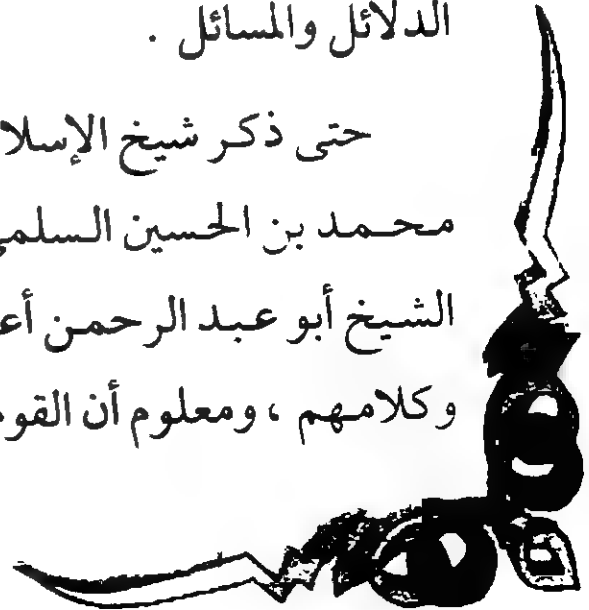 الدلائل والمسائل .
حتى ذكر شيخ الإسلا
محمد بن الحسين السلمي
الشيخ أبو عبد الرحمن أعـ
وكلامهم ، ومعلوم أن القوم